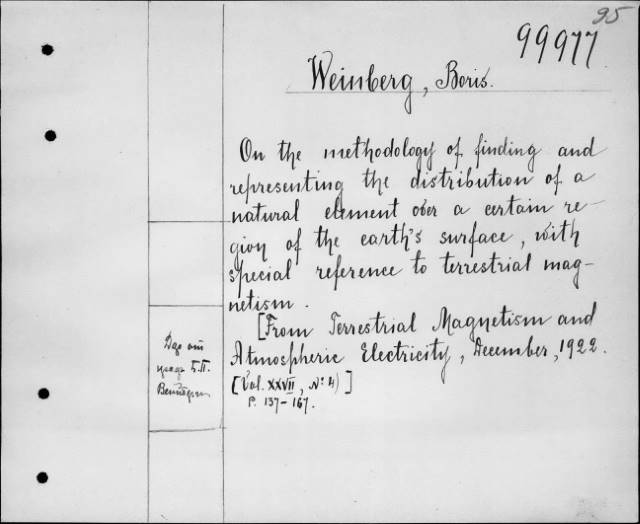 95
99977
Weinberg, Boris.
On the methodology of finding and
representing the distribution of a
natural element over a certain re-
gion of the earth's surface, with
special reference to terrestrial mag-
netism.
[From Terrestrial Magnetism and
Atmospheric Electricity, December, 1922.
[Vol. XXVII, № 4)]
P. 137-167.
Дар от
проф. Б.П.
Вейнберга